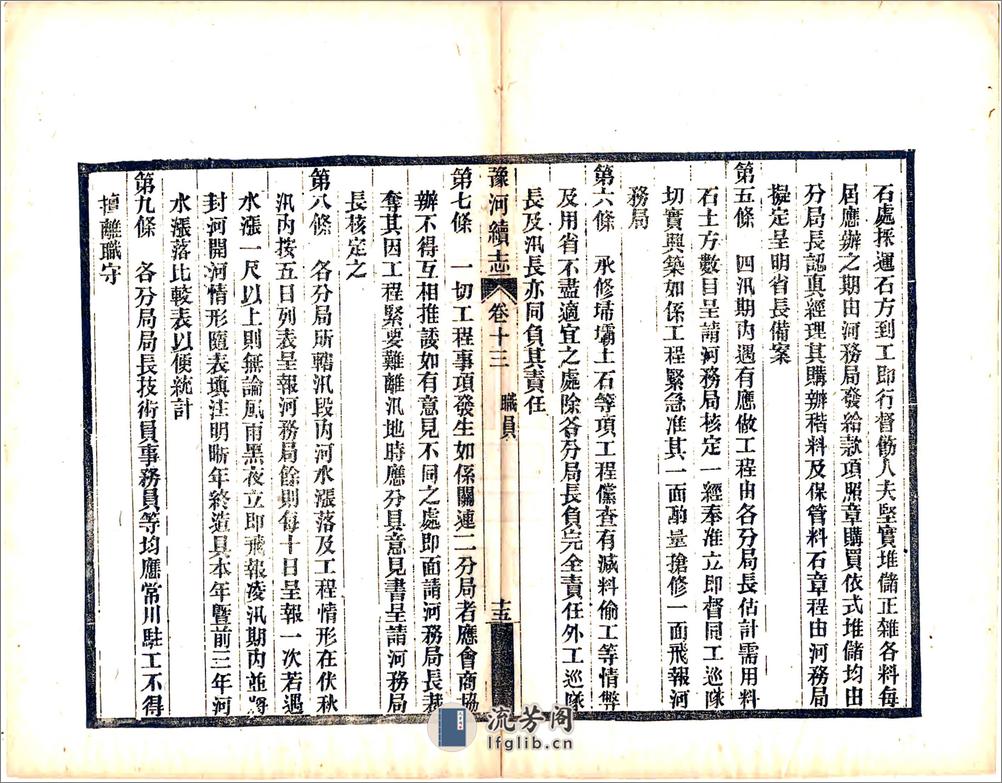 石處採運石方到工卽行督飭人夫堅實堆儲正雜各料每
屆應辦之期由河務局發給款項照章購買依式堆儲均由
分局長認真經理其購辦稭料及保管料石章程由河務局
擬定呈明省長備案
第五條　四汛期內遇有應做工程由各分局長估計需用料
石土方數目呈請河務局核定一經奉准立即督同工巡隊
切實興築如係工程緊急准其一面酌量搶修一面飛報河
務局
第六條　承修埽壩土石等項工程儻查有減料偷工等情弊
及用省不盡適宜之處除各分局長負完全責任外工巡隊
長及汛長亦同負其責任
豫河續志　卷十三　職員　十五
第七條　一切工程事項發生如係關連二分局者應會商協
辦不得互相推諉如有意見不同之處即面請河務局長裁
奪其因工程緊要難離汛地時應分具意見書呈請河務局
長核定之
第八條　各分局所轄汛段內河水漲落及工程情形在伏秋
汛內按五日列表呈報河務局餘則每十日呈報一次若遇
水漲一尺以上則無論風雨黑夜立即飛報凌汛期內並將
封河開河情形隨表填注明晰年終造具本年暨前三年河
水漲落比較表以便統計
第九條　各分局局長技術員事務員等均應常川駐工不得
擅離職守
流芳閣
lfglib.cn